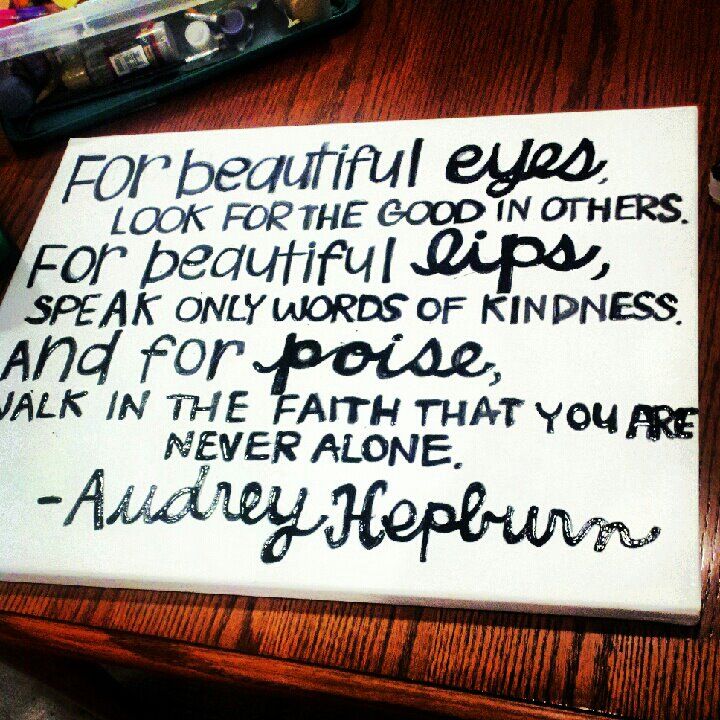 For beautiful eyes,
LOOK FOR THE GOOD IN OTHERS.
For beautiful lips,
SPEAK ONLY WORDS OF KINDNESS.
And for poise,
WALK IN THE FAITH THAT YOU ARE
NEVER ALONE.
-Audrey Hepburn